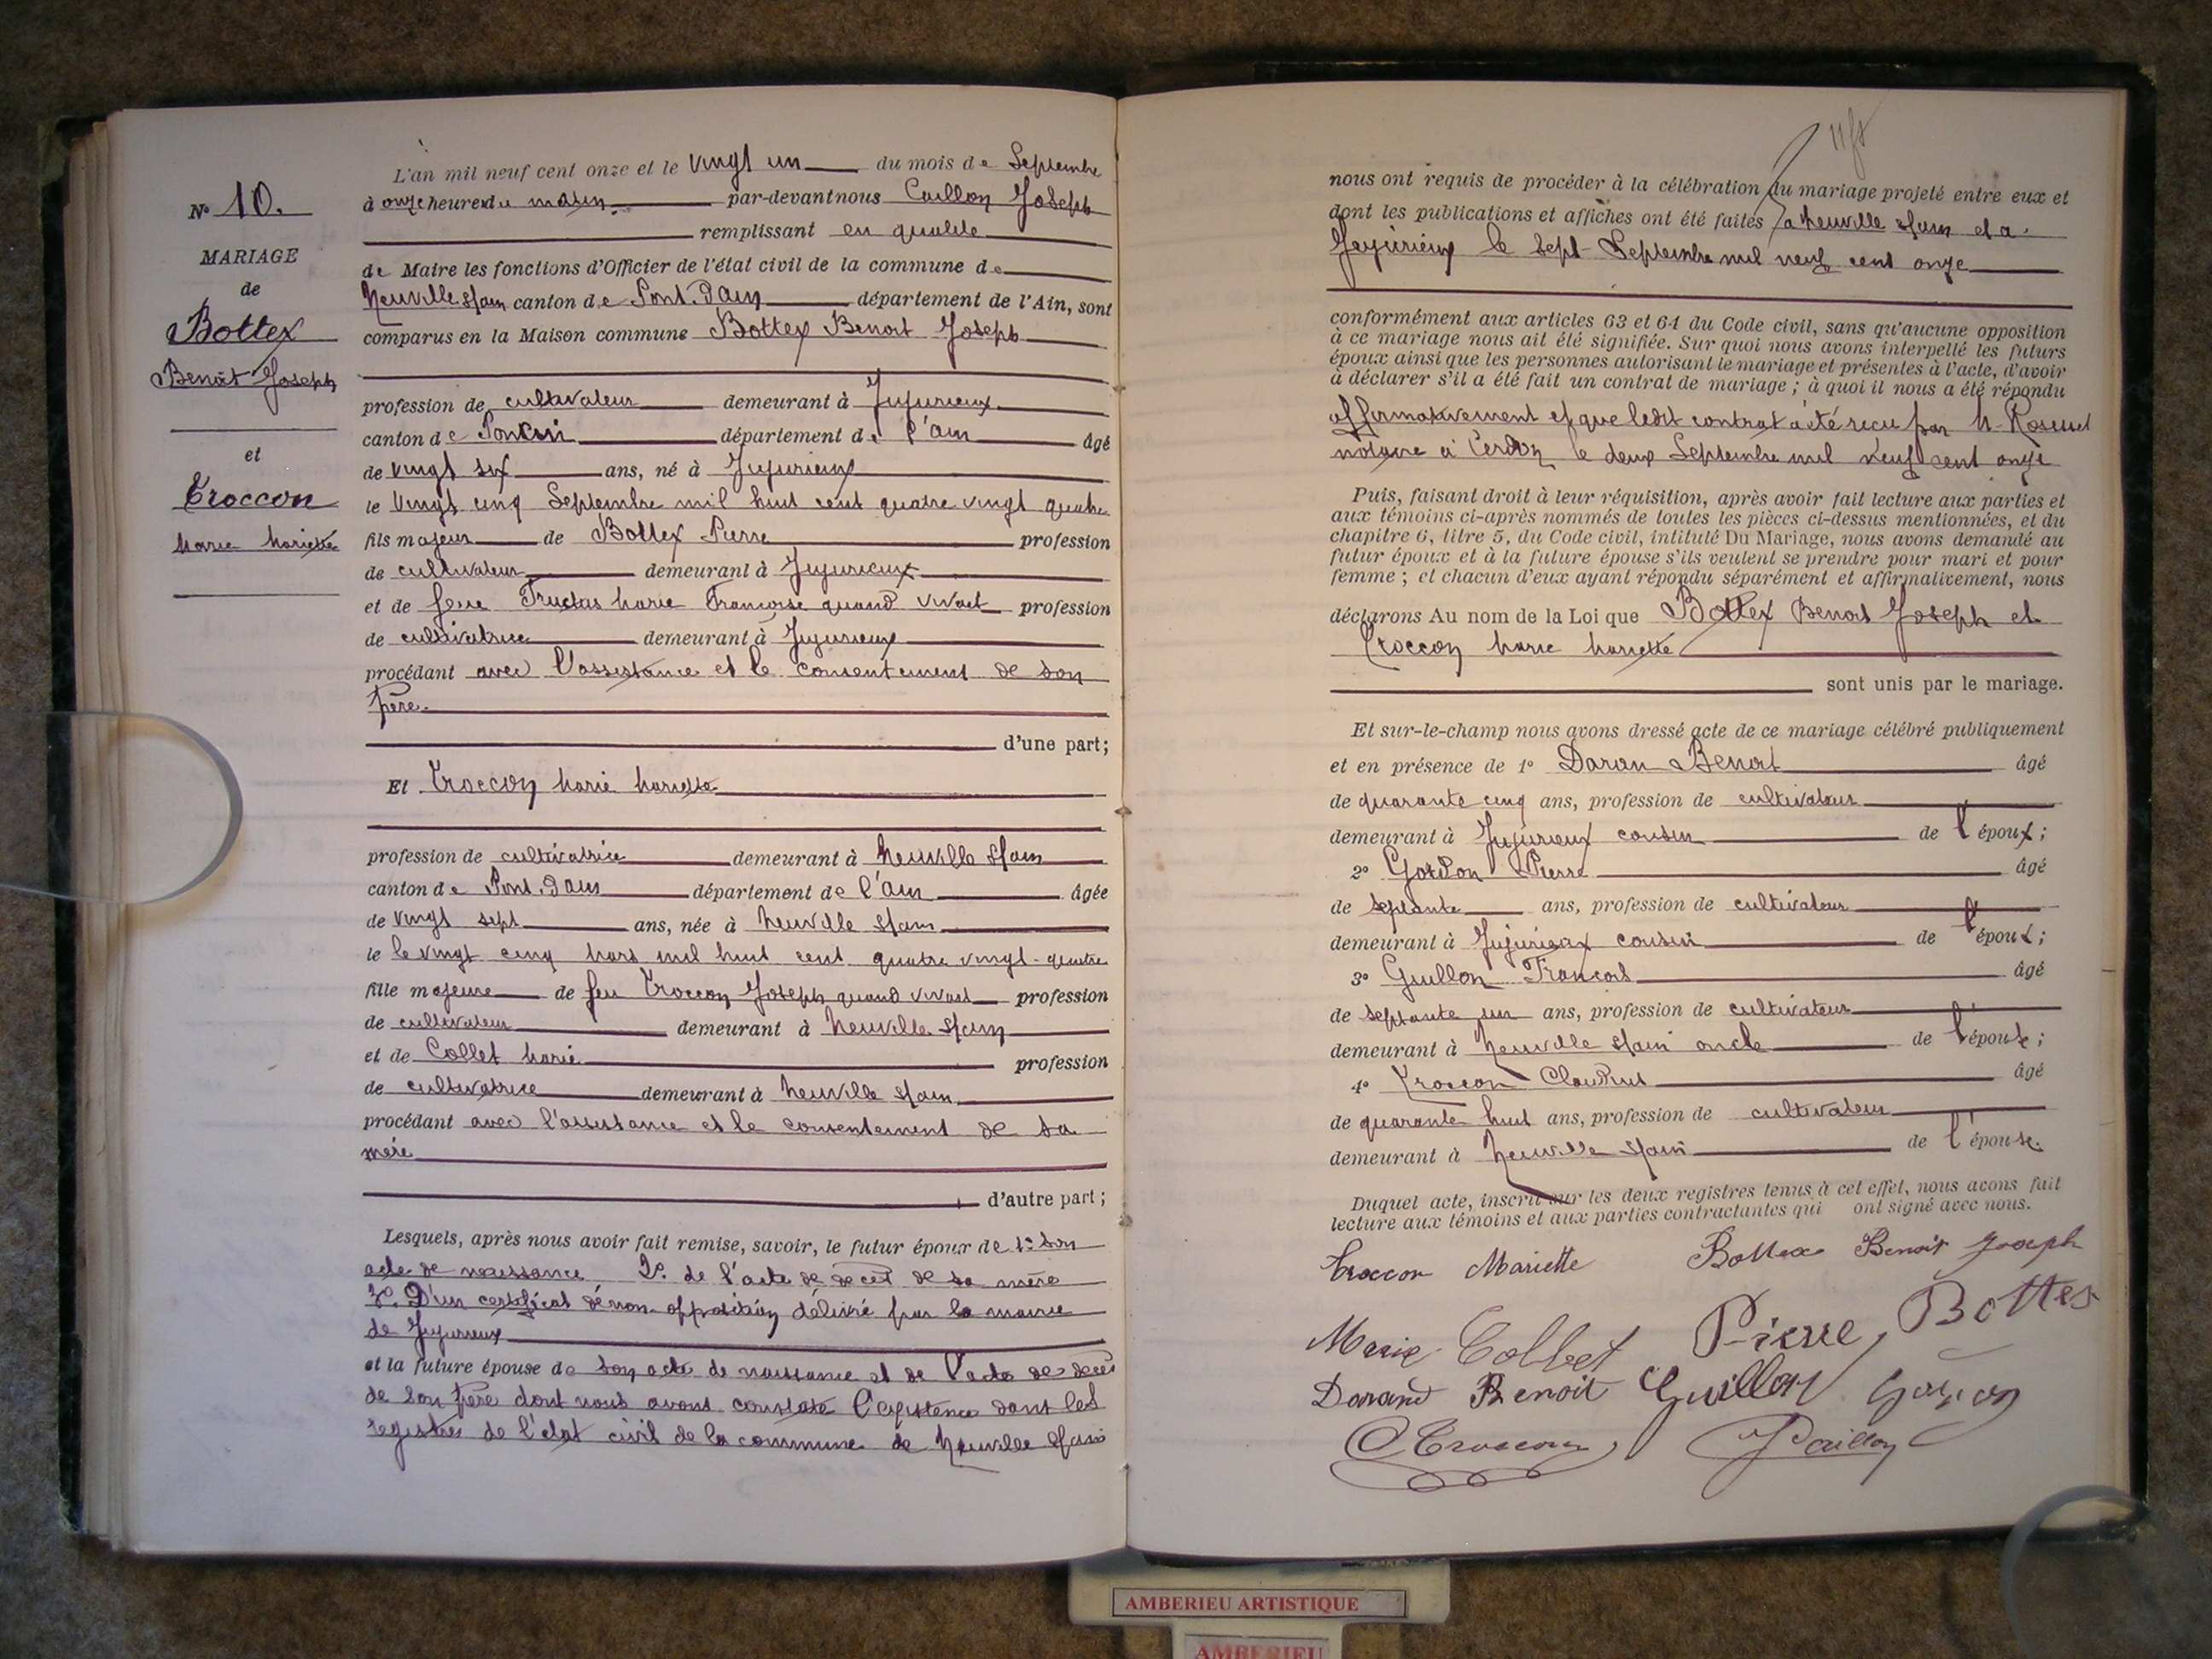 L'an mil neuf cent onze et le vingt un du mois de Septembre
à onze heures du matin. par-devant nous Caillon Joseph
remplissant en qualité
de Maire les fonctions d'Officier de l'état civil de la commune de
Neuville s/ain canton de Pont-d'ain département de l'Ain, sont
comparus en la Maison commune Bottex Benoit Joseph
profession de cultivateur demeurant à Jujurieux
canton de Poncin département de l'ain âgé
de vingt six ans, né à Jujurieux
le vingt cinq Septembre mil huit cent quatre vingt quatre
fils majeur de Bottex Pierre profession
de cultivateur demeurant à Jujurieux
et de feue Marie Francoise quand vivait profession
de cultivatrice demeurant à Jujurieux
procédant avec l'assistance et le consentement de son
père.
d'une part;
Et Troccon Marie Mariette
profession de cultivatrice demeurant à Neuville s/ain
canton de Pont-d'ain département de l'ain âgée
de vingt sept ans, née à Neuville s/ain
le le vingt cinq Mars mil huit cent quatre vingt-quatre
fille majeure de feu Troccon Joseph quand vivait profession
de cultivateur demeurant à Neuville s/ain
et de Collet Marie profession
de cultivatrice demeurant à Neuville s/ain
procédant avec l'assistance et le consentement de sa
mère
d'autre part;
Lesquels, après nous avoir fait remise, savoir, le futur époux de 1° son
acte de naissance 2°. de l'acte de décès de sa mère
3°. D'un certificat de non-opposition délivré par la mairie
de Jujurieux
et la future épouse de son acte de naissance et de l'acte de décès
de son père dont nous avons constaté l'existence dans les
registres de l'état civil de la commune de Neuville s/ain
N° 10.
MARIAGE
de
Bottex
Benoit Joseph
et
Troccon
Marie Mariette
nous ont requis de procéder à la célébration du mariage projeté entre eux et
dont les publications et affiches ont été faites à Neuville s/ain et à
Jujurieux le sept Septembre mil neuf cent onze
conformément aux articles 63 et 64 du Code civil, sans qu'aucune opposition
à ce mariage nous ait été signifiée. Sur quoi nous avons interpellé les futurs
époux ainsi que les personnes autorisant le mariage et présentes à l'acte, d'avoir
à déclarer s'il a été fait un contrat de mariage; à quoi il nous a été répondu
affirmativement et que ledit contrat a été recu par M.
notaire à Cerdon le deux Septembre mil neuf cent onze
Puis, faisant droit à leur réquisition, après avoir fait lecture aux parties et
aux témoins ci-après nommés de toutes les pièces ci-dessus mentionnées, et du
chapitre 6, titre 5, du Code civil, intitulé Du Mariage, nous avons demandé au
futur époux et à la future épouse s'ils veulent se prendre pour mari et pour
femme; et chacun d'eux ayant répondu séparément et affirmativement, nous
déclarons Au nom de la Loi que Bottex Benoit Joseph et
Troccon Marie Mariette
sont unis par le mariage.
Et sur-le-champ nous avons dressé acte de ce mariage célébré publiquement
et en présence de 1° Daran Benoit âgé
de quarante cinq ans, profession de cultivateur
demeurant à Jujurieux cousin de l'époux;
2° Gordon Pierre âgé
de septante ans, profession de cultivateur
demeurant à Jujurieux cousin de l'époux;
3° Guillon Francois âgé
de septante un ans, profession de cultivateur
demeurant à Neuville s/ain oncle de l'épouse;
4° Troccon Claudius âgé
de quarante huit ans, profession de cultivateur
demeurant à Neuville s/ain de l'épouse.
Duquel acte, inscrit sur les deux registres tenus à cet effet, nous avons fait
lecture aux témoins et aux parties contractantes qui ont signé avec nous.
Troccon Mariette Bottex Benoit Joseph
Marie Collet Pierre Bottex
Darand Benoit Guillon
C Troccon J Caillon
AMBERIEU ARTISTIQUE
AMBERIEU